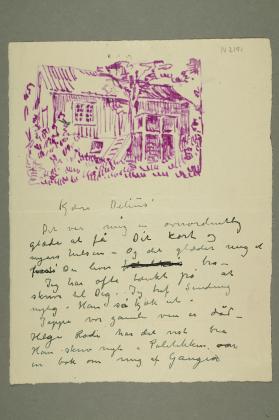 N 2191
Kjære Delius!
Det var mig en overordentlig
glæde at få Dit kort og
nyårs hilsen – Og det glæder mig at
Du lever bra –
Jeg har ofte tænkt på at
skrive til Dig. Jeg traf Sinding
nylig – Han så gåt ut –
Jappe vor gamle ven er død –
Helge Rode har det visst bra
Han skriver nylig i Politikken
en bok om mig af Gauguin